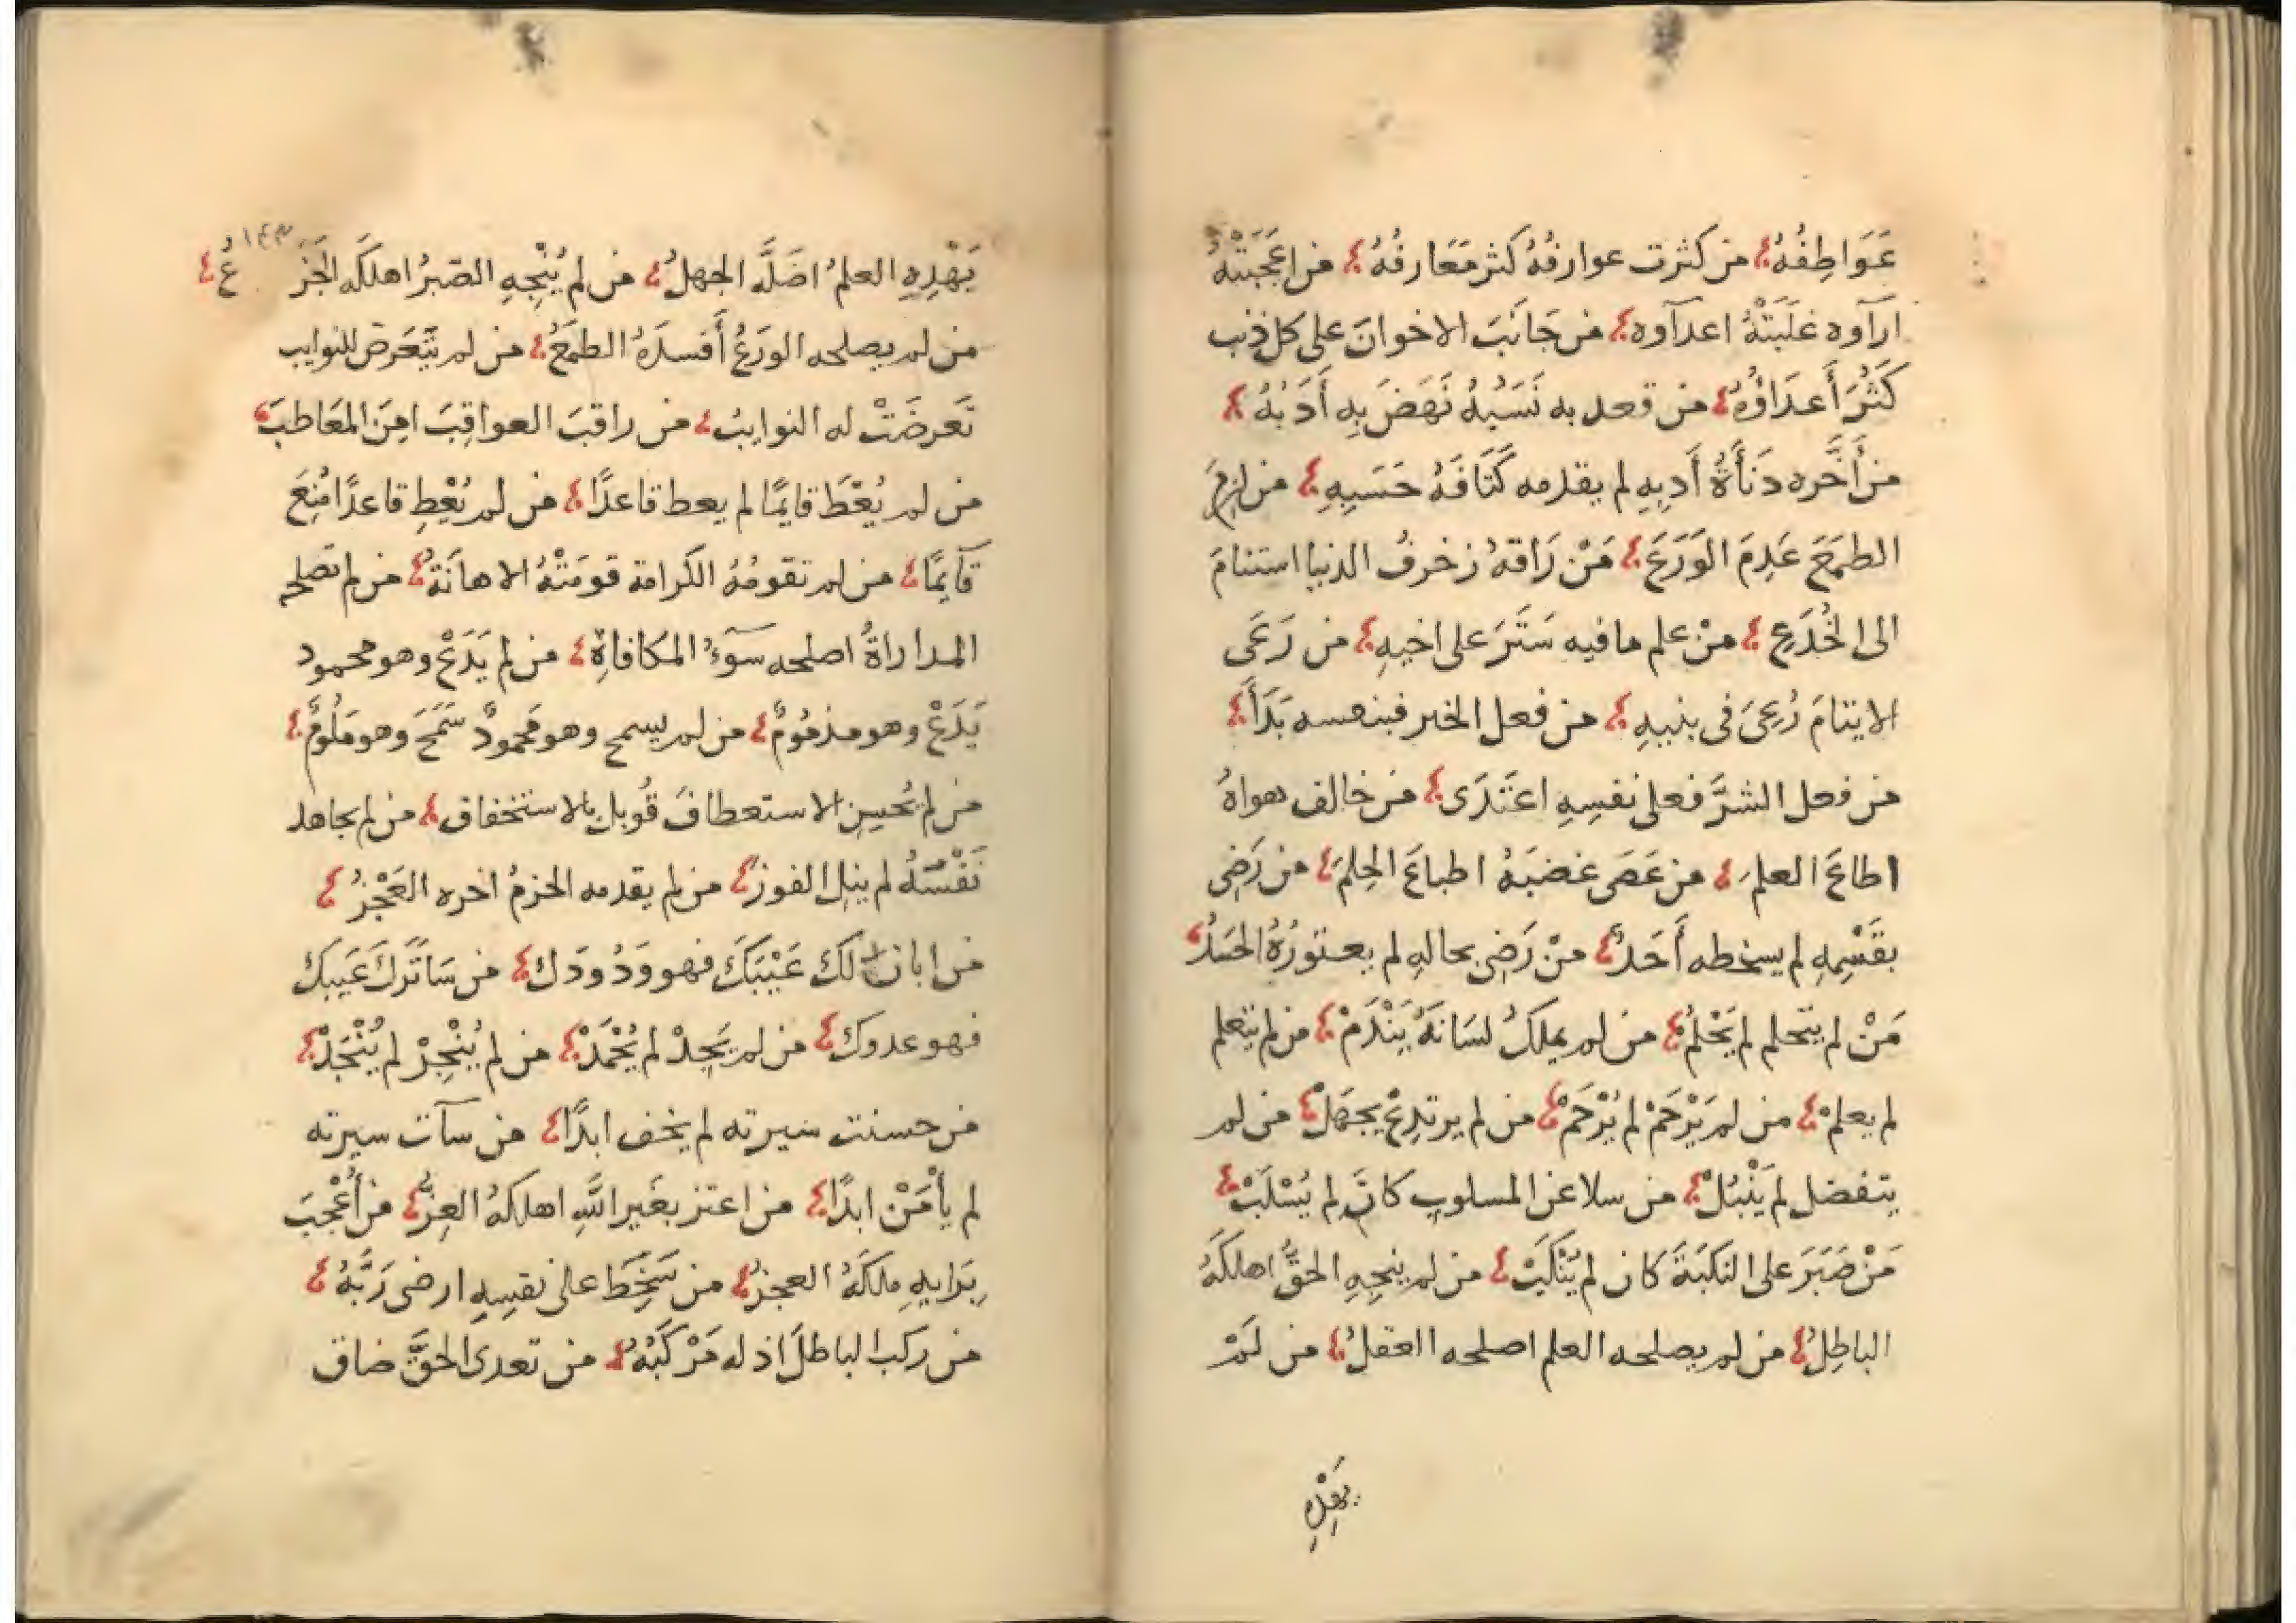 عَوَاطِفُهُ؛ من كثرت عوارفُهُ كثر مَعَارفُهُ؛ من اعجَبَتْهُ
ارآوه غلَبَتْهُ اعدآوه؛ من جَانَبَ الاخوانَ على كل ذنب
كَثُرَ أَعدَاؤُهُ؛ من قعد به نَسَبُهُ نَهَضَ بِهِ أَدَبُهُ؛
من أَخَّره دَنأَةُ أَدبِهِ لم يقدمه كَثَافَةُ حَسَبِهِ؛ من لزِمَ
الطمَعَ عَدِمَ الوَرَعَ؛ مَنْ رَاقهُ زخرفُ الدنيا استنامَ
الى الخُدَعِ؛ منْ علم ما فيه سَتَرَ على اخيهِ؛ من رَعَى
الايتامَ رُعِىَ فى بنيهِ؛ من فعل الخير فبنفسه بَدَأَ؛
من فعل الشرَّ فعلى نفسِهِ اعتَدَى؛ من خالف هواهُ
اطاعَ العلمَ؛ من عَصَى غضبَهُ اطاعَ الحِلمَ؛ من رَضِى
بقَسْمِهِ لم يسخطه أَحَدٌ؛ منْ رَضِى بحالهِ لم يعتورْهُ الحَسَدُ؛
مَنْ لم يتحلم لم يَحْلُمْ؛ من لمر يملكُ لسَانَهُ يَنْدَمْ؛ من لم يتعلم
لم يعلمْ؛ من لم يَرْحَمْ لم يُرْحَمْ؛ من لم يرتدِعْ يجهَلْ؛ من لم
يتفضل لم يَنْبُلْ؛ من سلا عن المسلوب كانَ لم يُسْلَبْ؛
مَنْ صَبَرَ على النكبَةَ كان لم يُنْكَبْ؛ من لم ينجِهِ الحقُّ اهلكَهُ
الباطِلُ؛ من لم يصلحه العلم اصلحه العقلُ؛ من لَمْ
يَهْدِهِ
يَهْدِهِ العلمُ اضَلَّه الجهلُ؛ من لم يُنْجِهِ الصّبرُ اهلكَه الجَزَعُ؛
١٤٣
من لم يصلحه الورَعُ أَفسدَهُ الطمَعُ؛ من لم يتَّعَرض للنوايب
تَعرضَتْ له النوايبُ؛ من راقبَ العواقِبَ امِنَ المعَاطبَ؛
من لم يُعْطَ قايمًا لم يعط قاعدًا؛ من لم يُعْطِ قاعدًا مُنِعَ
قآيِمًا؛ من لم تقومْهُ الكرامة قومَتْهُ الاهانَةُ؛ من لم تصلحه
المداراةُ اصلحه سوٓءُ المكافاةِ؛ من لم يَدَعْ وهو محمود
يَدَعْ وهو مذمُومٌ؛ من لم يسمح وهو محمودٌ سَمَحَ وهو مَلُومٌ؛
من لم يُحسِنِ الاستعطافَ قُوبل بالاستخفاق؛ من لم يجاهد
نَفْسَهُ لم ينلِ الفوزَ؛ من لم يقدمه الحزمُ اخره العَجْزُ؛
من ابان لكَ عَيْبَكَ فهو وَدُودَك؛ من سَاتَرَكَ عَيبكَ
فهو عدوكَ؛ من لم يَجِدْ لم يُحْمَدْ؛ من لم يُنْجِدْ لم يُنْجَدْ؛
من حسنت سيرته لم يخف ابدًا؛ من سآت سيرته
لم يأْمَنْ ابدًا؛ من اعتز بغَير اللَّهِ اهلكهُ العِزُّ؛ من أُعْجِبَ
بِرَايهِ ملكَهُ العجزُ؛ من سَخِطَ على نفسِهِ ارضى رَبَّهُ؛
من ركب الباطلَ اذله مَرْكَبُهُ؛ من تعدى الحقَّ ضاق